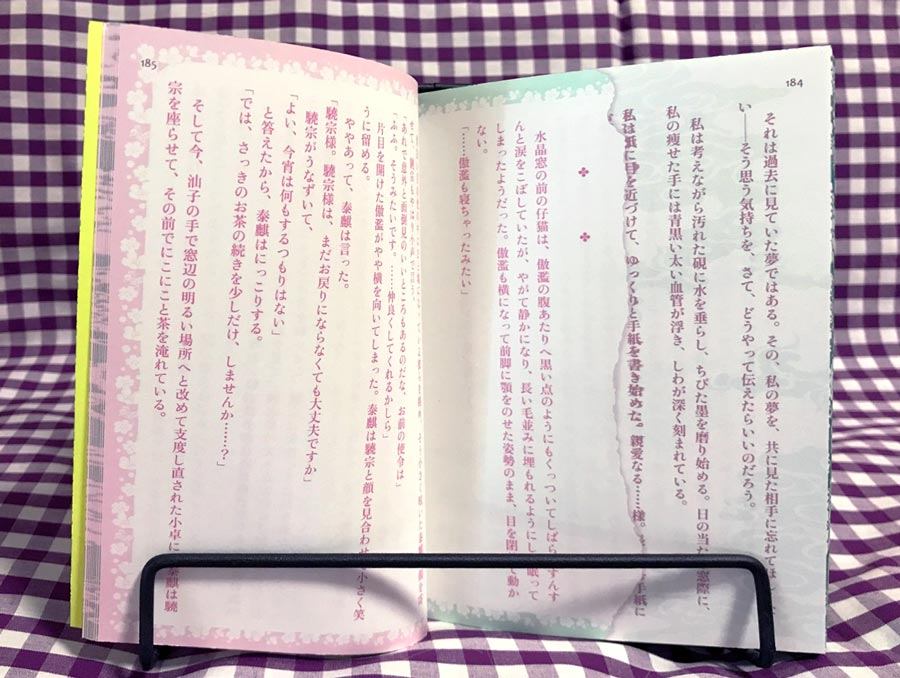 184
それは過去に見ていた夢ではある。その、私の夢を、共に見た相手に忘れてほ
い――そう思う気持ちを、さて、どうやって伝えたらいいのだろう。
私は考えながら汚れた硯に水を垂らし、ちびた墨を磨り始める。日の当た 窓際に、
私の痩せた手には青黒い太い血管が浮き、しわが深く刻まれている。
私は紙に目を近づけて、ゆっくりと手紙を書き始めた。親愛なる……様。 手紙に
水晶窓の前の仔猫は、傲濫の腹あたりへ黒い点のようにもくっついてしばら すんす
んと涙をこぼしていたが、やがて静かになり、長い毛並みに埋もれるようにし 眠って
しまったようだった。傲濫も横になって前脚に顎をのせた姿勢のまま、目を閉 て動か
ない。
「……傲濫も寝ちゃったみたい」
185
あれで意外と面倒見のいいところもあるのだな、お前の使令は」
「ふふ。そうみたいです。……仲良くしてくれるかしら」
片目を開けた傲濫がやや横を向いてしまった。泰麒は驍宗と顔を見合わせ 小さく笑
うに留める。
ややあって、泰麒は言った。
「驍宗様。驍宗様は、まだお戻りにならなくても大丈夫ですか」
驍宗がうなずいて、
「よい、今宵は何もするつもりはない」
と答えたから、泰麒はにっこりする。
「では、さっきのお茶の続きを少しだけ、しませんか……？」
そして今、汕子の手で窓辺の明るい場所へと改めて支度し直された小卓に 泰麒は驍
宗を座らせて、その前でにこにこと茶を淹れている。